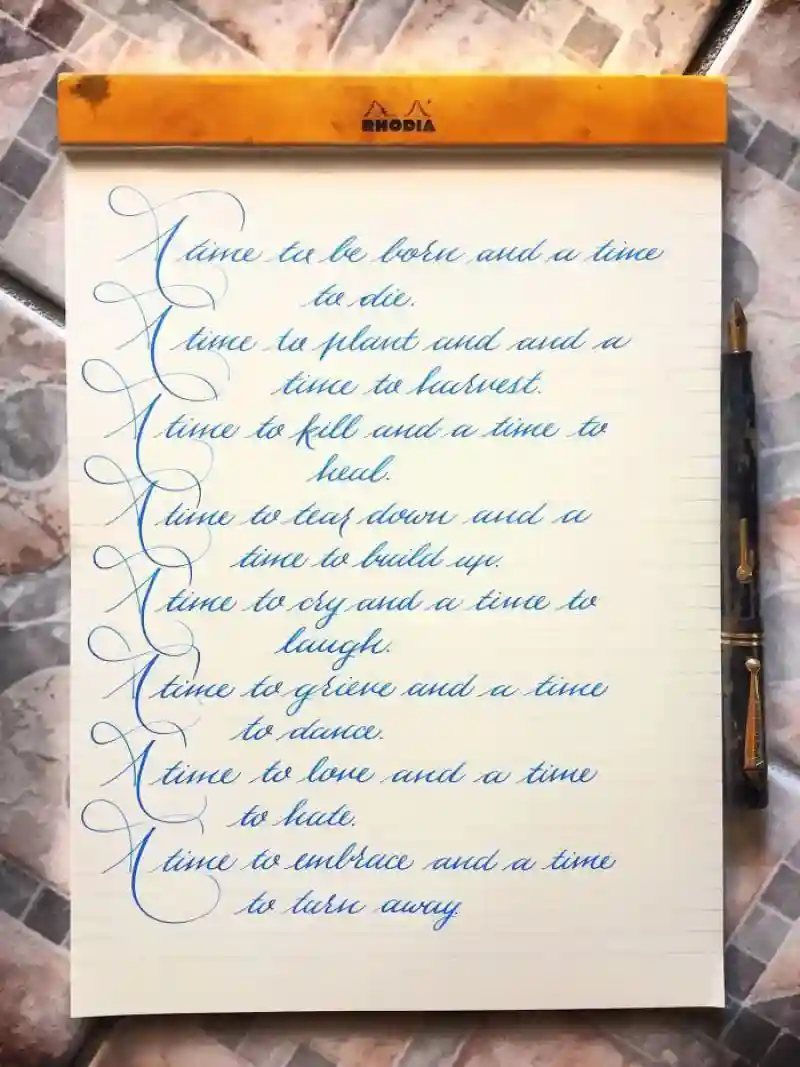 RHODIA
A time to be born and a time
to die.
A time to plant and and a
time to harvest.
A time to kill and a time to
heal.
A time to tear down and a
time to build up.
A time to cry and a time to
laugh.
A time to grieve and a time
to dance.
A time to love and a time
to hate.
A time to embrace and a time
to turn away.